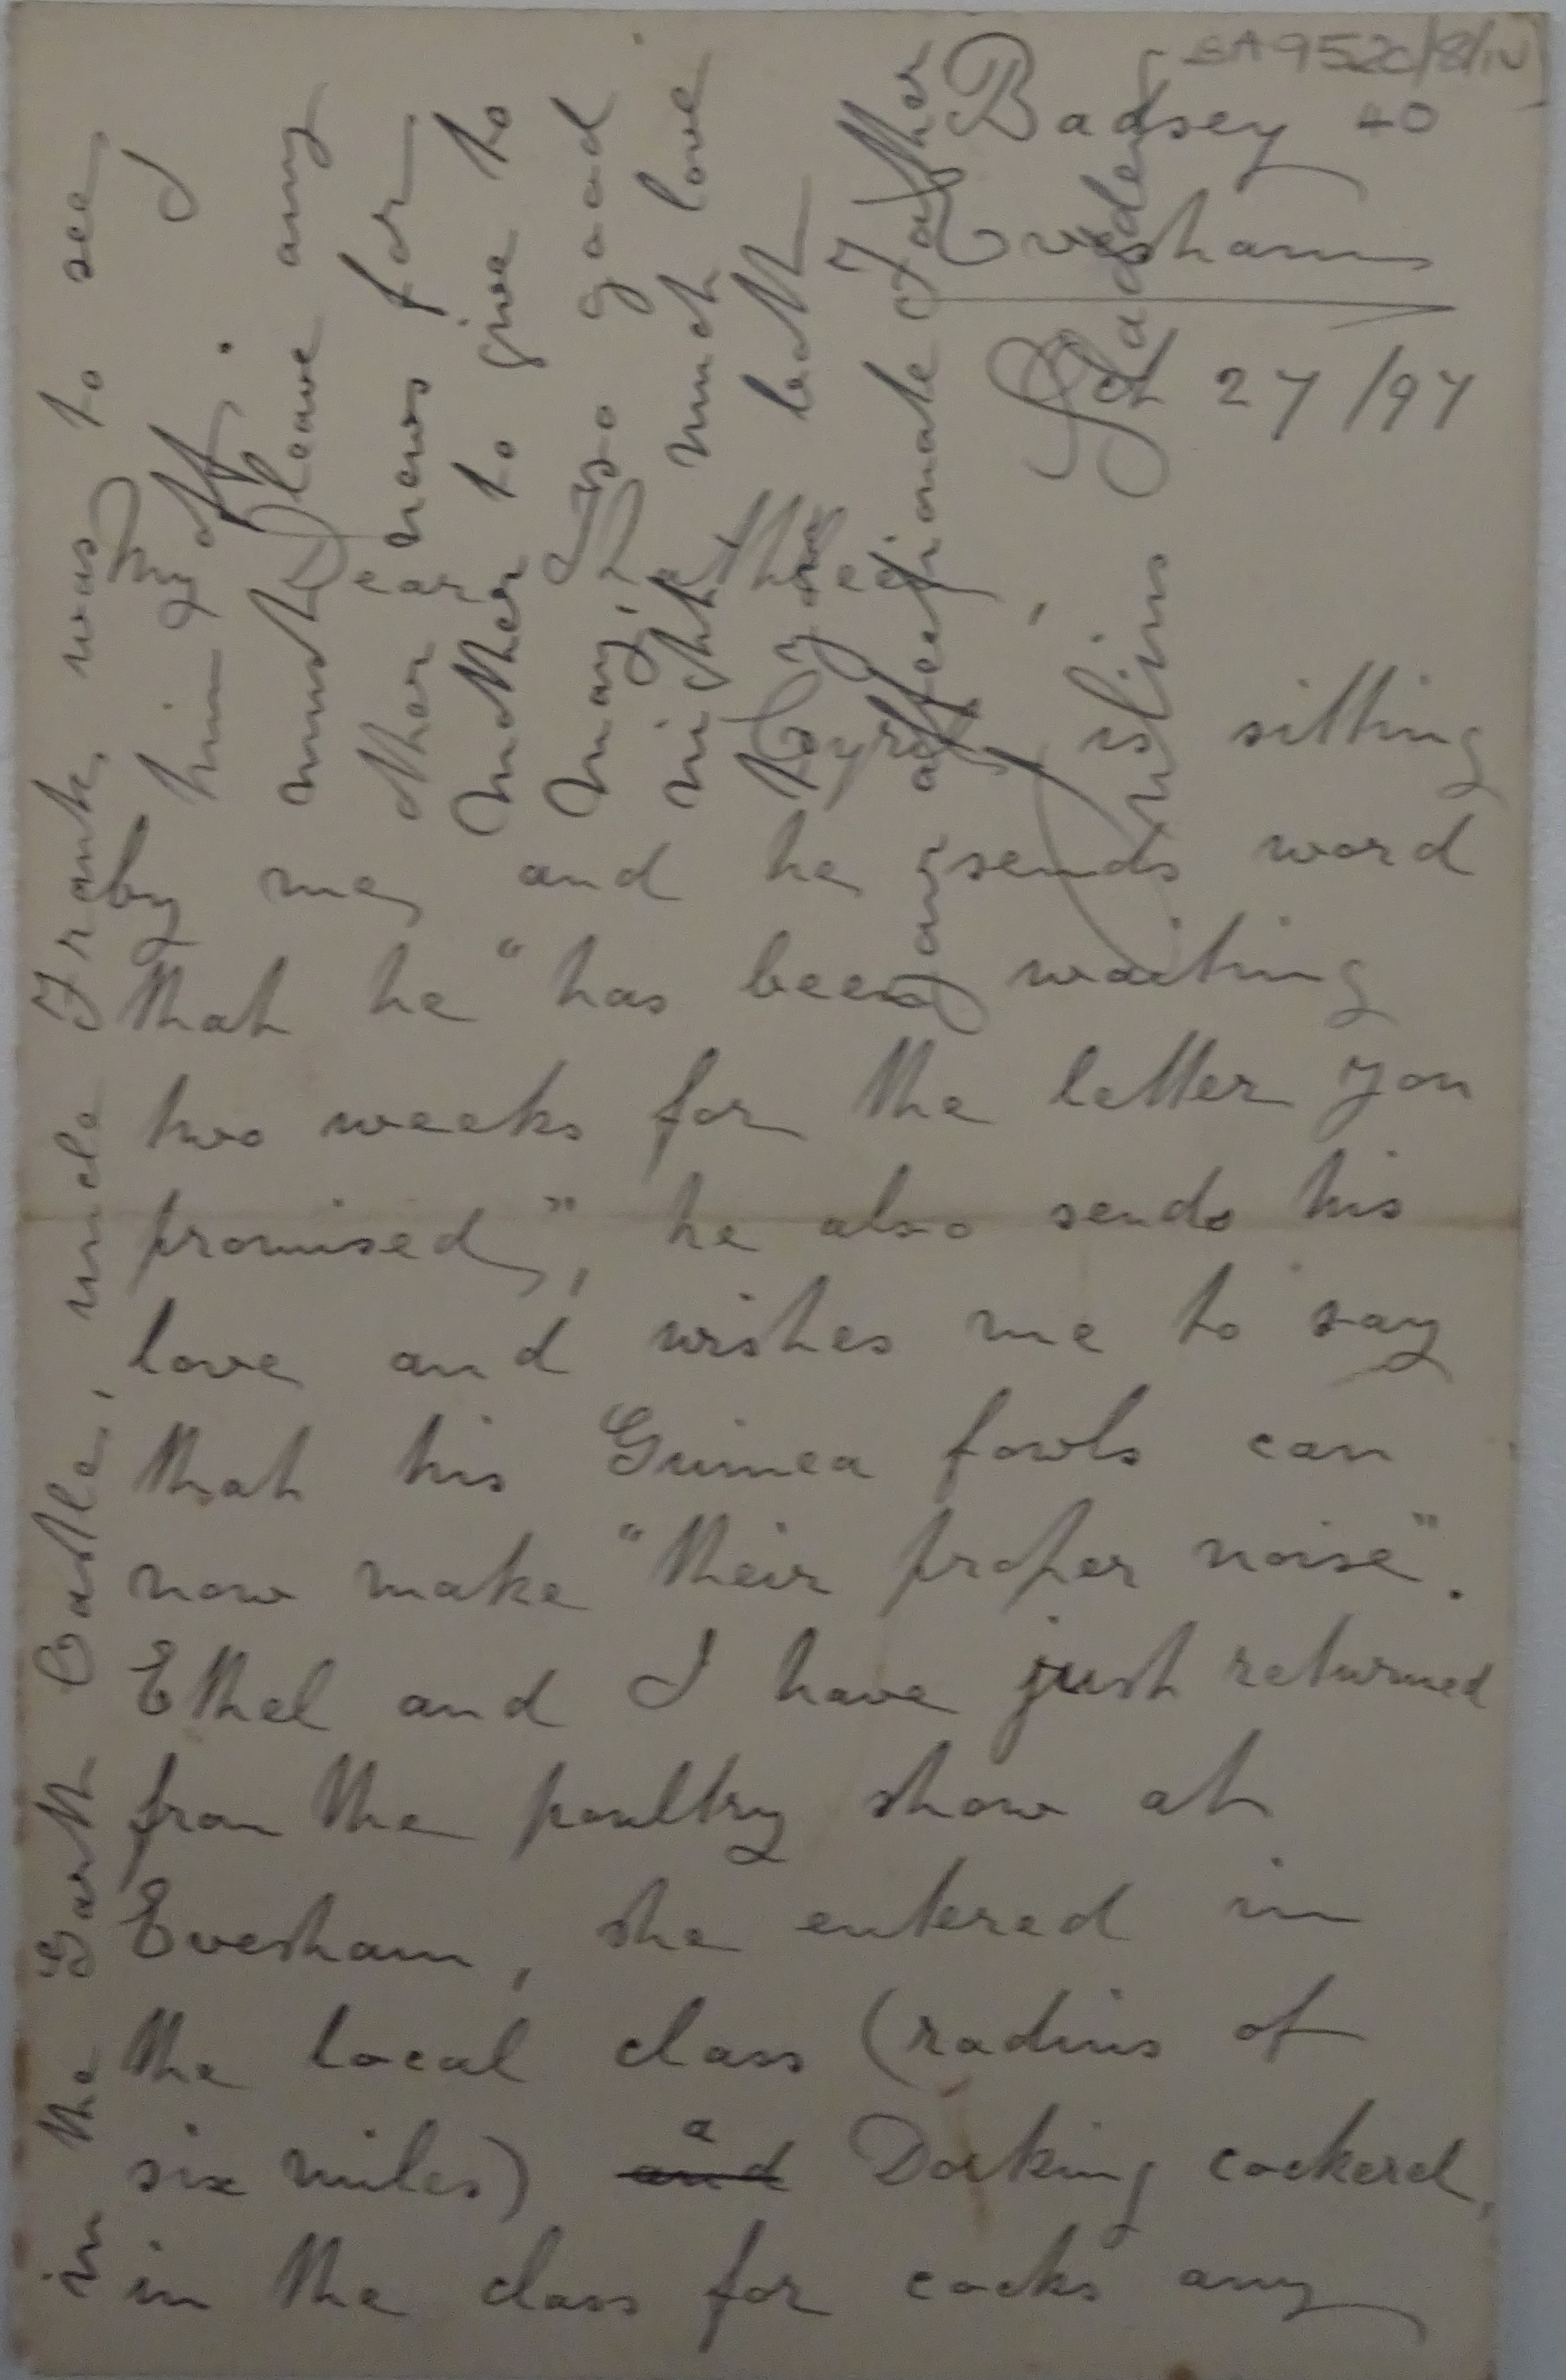 Badsey 40
Evesham
Oct 27/97
My Dear Kathleen,
Cyril is sitting
by me, and he sends word
that he "has been waiting
two weeks for the letter you
promised", he also sends his
love and wishes me to say
that his Guinea fowls can
now make "their proper noise".
Ethel and I have just returned
from the poultry show at
Evesham, she entered in
the local class (radius of
six miles) and a Dorking cockerel,
in the class for cocks any
in the Garth Castle, uncle Frank, was to see
him off. I
must leave any
other news for
Mother to give to
May. So good
night with much love
to you both
Your affectionate Father
Julius Sladden